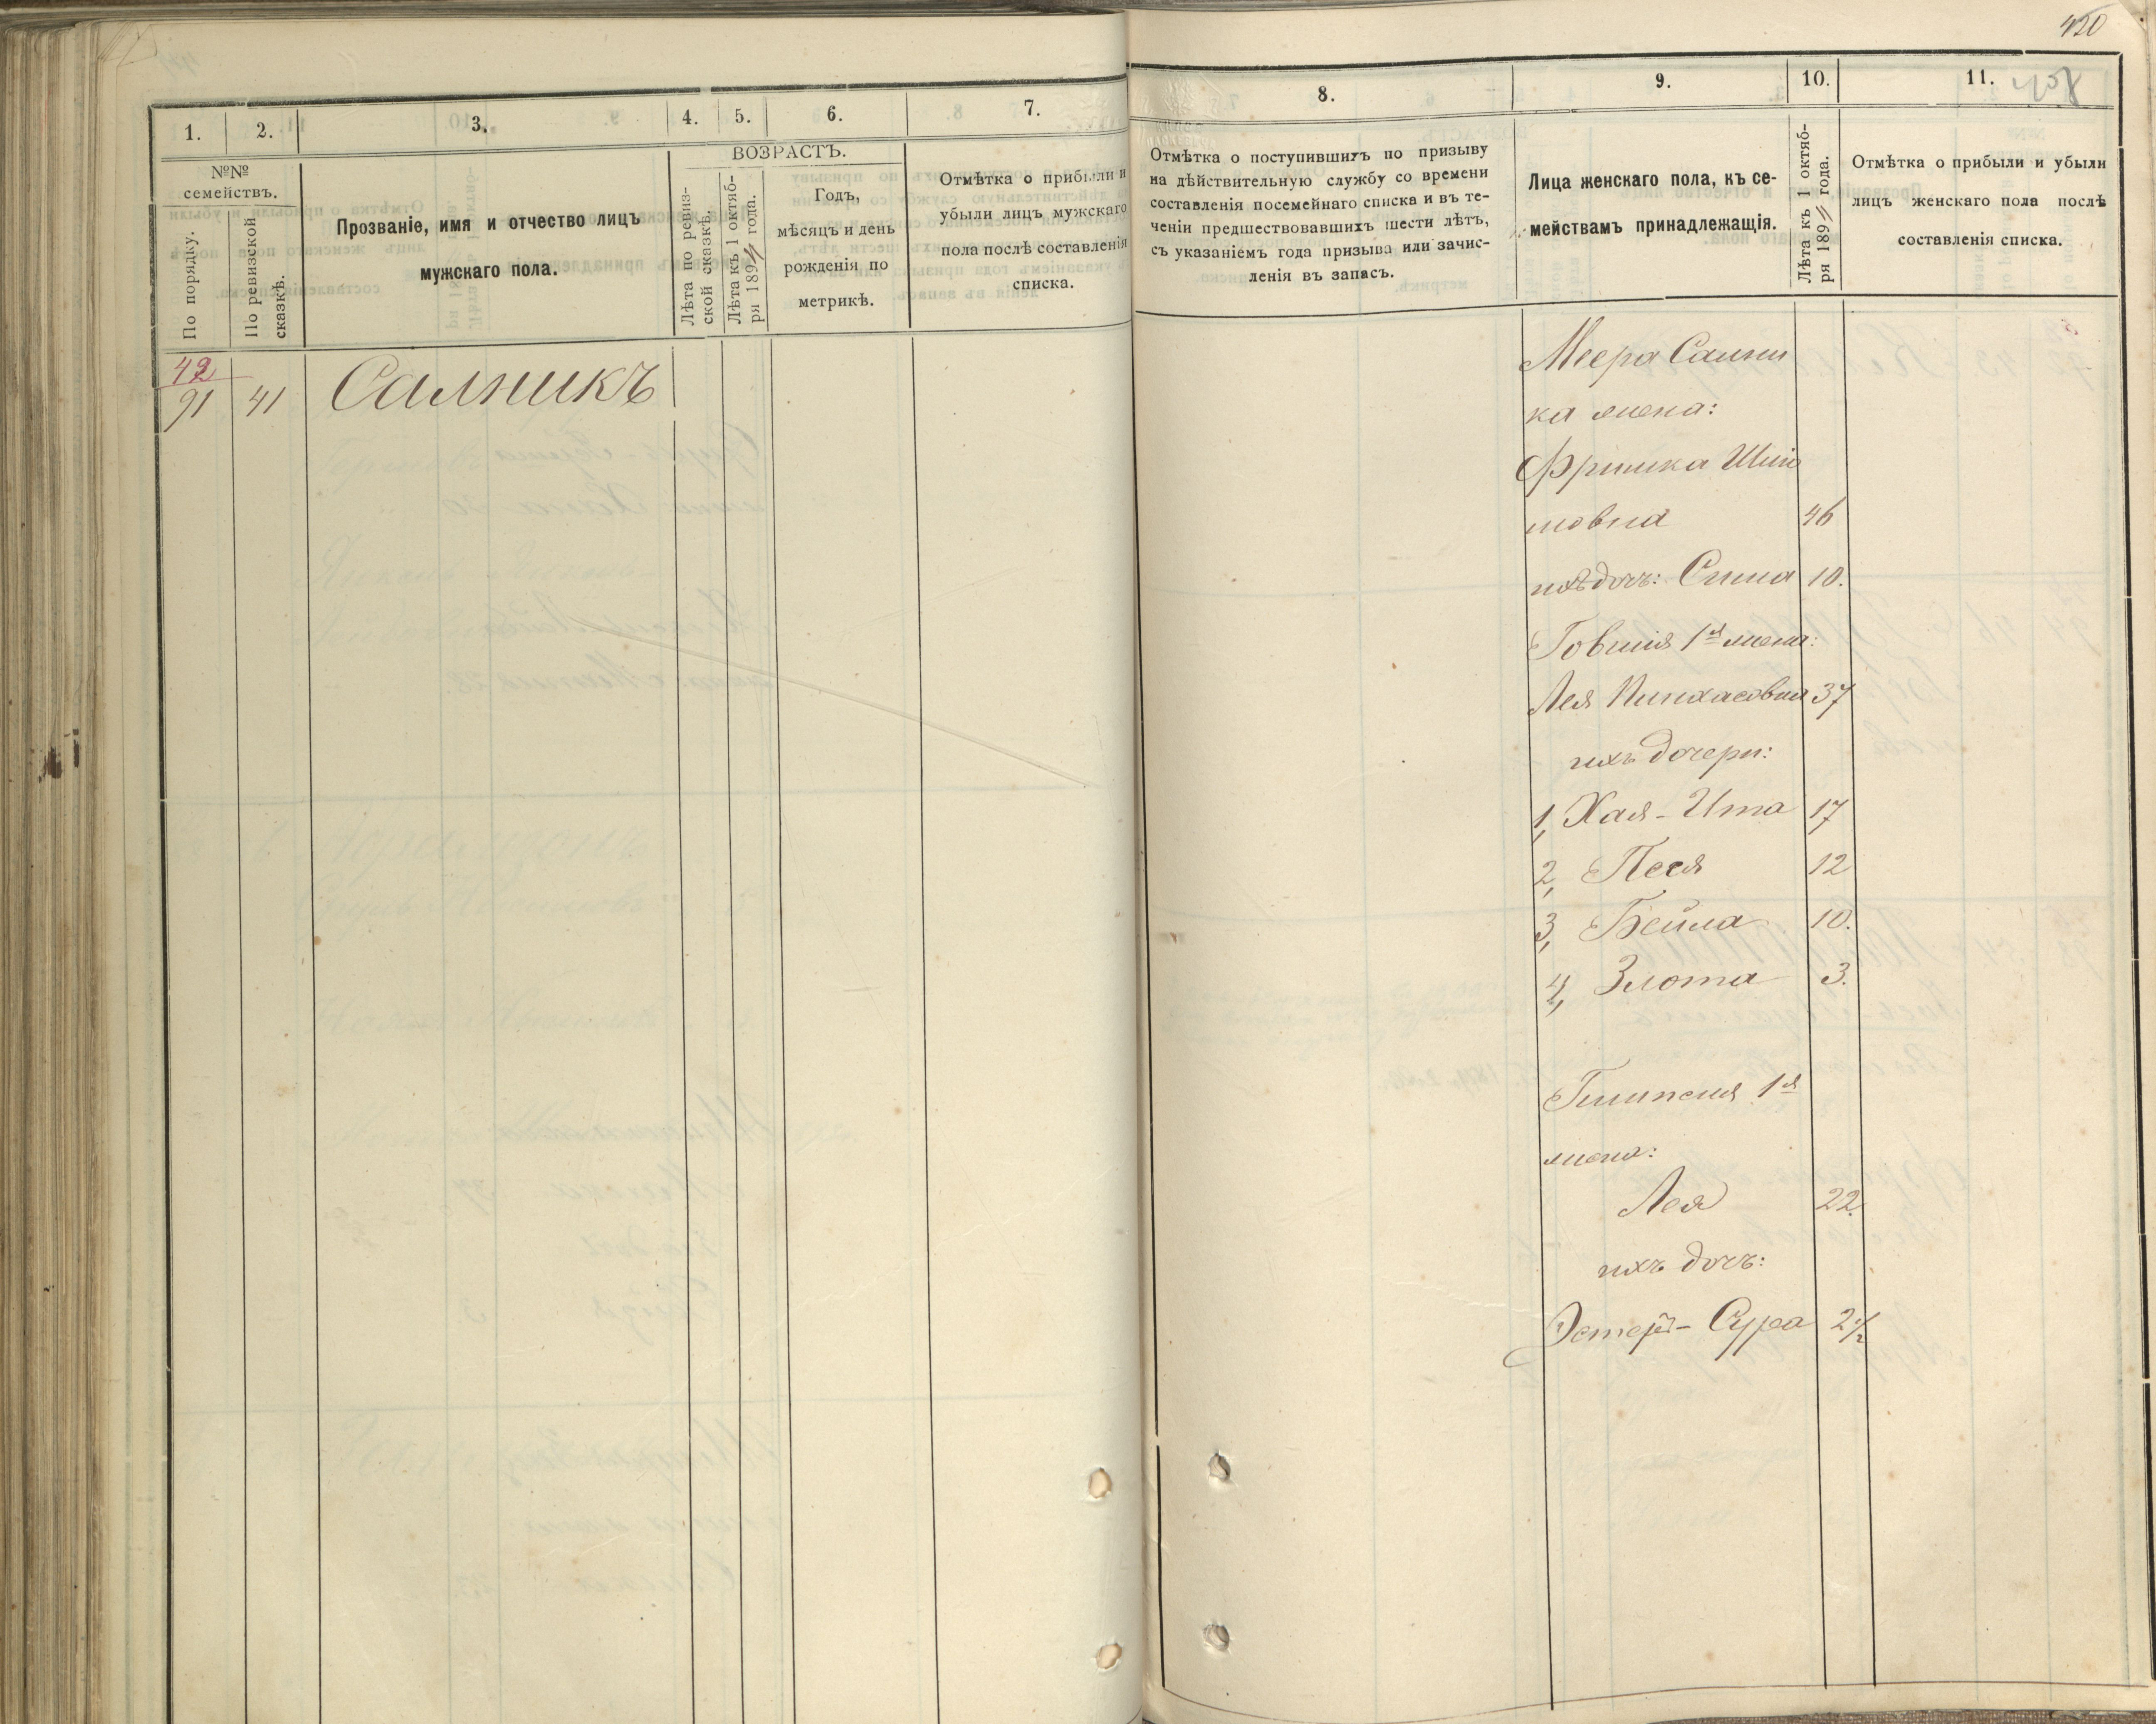 420
408
1.
2.
3.
4.
5.
6.
7.
№№
семействъ.
По порядку.
По ревизской
сказкѣ.
Прозваніе, имя и отчество лицъ
мужскаго пола.
ВОЗРАСТЪ.
Лѣта по ревиз-
ской сказкѣ.
Лѣта къ 1 октяб-
ря 1894 года.
Годъ,
мѣсяцъ и день
рожденія по
метрикѣ.
Отмѣтка о прибыли и
убыли лицъ мужскаго
пола послѣ составленія
списка.
42
91
41
Салникъ
8.
9.
10.
11.
Отмѣтка о поступившихъ по призыву
на дѣйствительную службу со времени
составленія посемейнаго списка и въ те-
ченіи предшествовавшихъ шести лѣтъ,
съ указаніемъ года призыва или зачис-
ленія въ запасъ.
Лица женскаго пола, къ се-
мействамъ принадлежащія.
Лѣта къ 1 октяб-
ря 1894 года.
Отмѣтка о прибыли и убыли
лицъ женскаго пола послѣ
составленія списка.
Меера Сални
ка жена:
46
ихъ дочь: 10.
1я жена:
Лея Пинхасовна 37
ихъ дочери:
1, Хая-Ита 17
2, Песя 12
3, Бейла 10.
4, Злота 3.
1я
жена:
Лея 22.
ихъ дочь:
Эстеръ-Сура 2 1/2